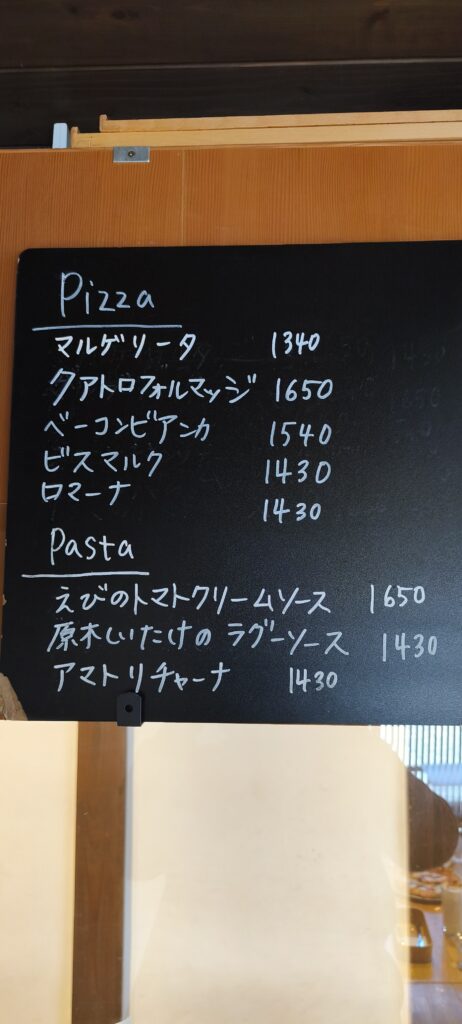 Pizza
マルゲリータ 1340
クアトロフォルマッジ 1650
ベーコンビアンカ 1540
ビスマルク 1430
ロマーナ 1430
Pasta
えびのトマトクリームソース 1650
原木しいたけのラグーソース 1430
アマトリチャーナ 1430